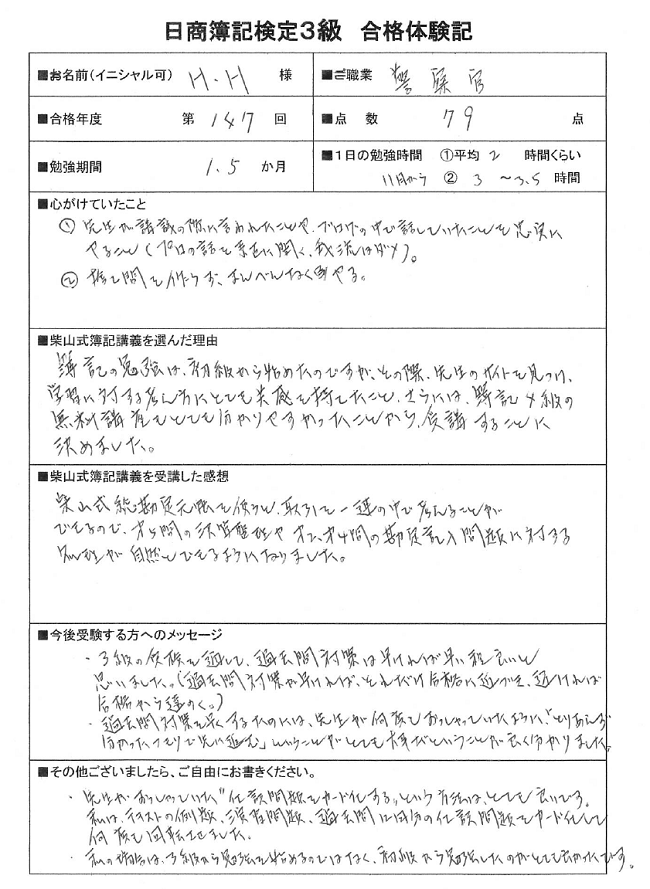 日商簿記検定3級 合格体験記
■お名前(イニシャル可) H.H 様
■ご職業 警察官
■合格年度 第 147 回
■点 数 79 点
■勉強期間 1.5 か月
■1日の勉強時間 ①平均 2 時間くらい
11月から ② 3 〜3.5 時間
■心がけていたこと
① 先生が講義の際に言われたことや、ブログの中で話していたことを忠実に
やること(プロの話を素直に聞く、我流はダメ)。
② 捨て問を作らず、まんべんなくやる。
■柴山式簿記講義を選んだ理由
簿記の勉強は、初級から始めたのですが、その際、先生のサイトを見つけ、
学習に対する考え方にとても共感を持てたこと、さらには、簿記4級の
無料講座もとても分かりやすかったことから、受講することに
決めました。
■柴山式簿記講義を受講した感想
柴山式総勘定元帳を使うと、取引を一連の中で考えることが
できるので、第5問の決算整理や第2、第4問の勘定記入問題に対する
処理が自然とできるようになりました。
■今後受験する方へのメッセージ
・3級の受験を通して、過去問対策は早ければ早い程良いと
思いました。(過去問対策が早ければ、それだけ合格に近づき、遅ければ
合格から遠のく。)
・過去問対策を早くするためには、先生が何度もおっしゃっていたように、「とりあえず
分かったつもりで先に進む」ということがとても大事だということが良く分かりました。
■その他ございましたら、ご自由にお書きください。
・先生がおっしゃっていた"仕訳問題をカード化する"という方法は、とても良いです。
私は、テキストの例題、演習問題、過去問は自分の仕訳問題をカード化して
何度も回転させました。
・私の場合は、3級から勉強を始めるのではなく、初級から勉強したのがとても良かったです。